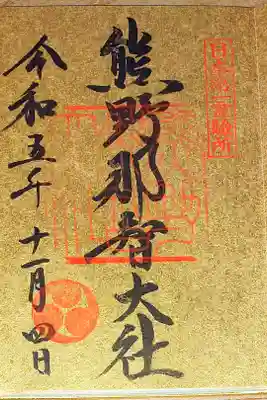 日本第一霊験所
熊野那智大社
令和五年十一月四日